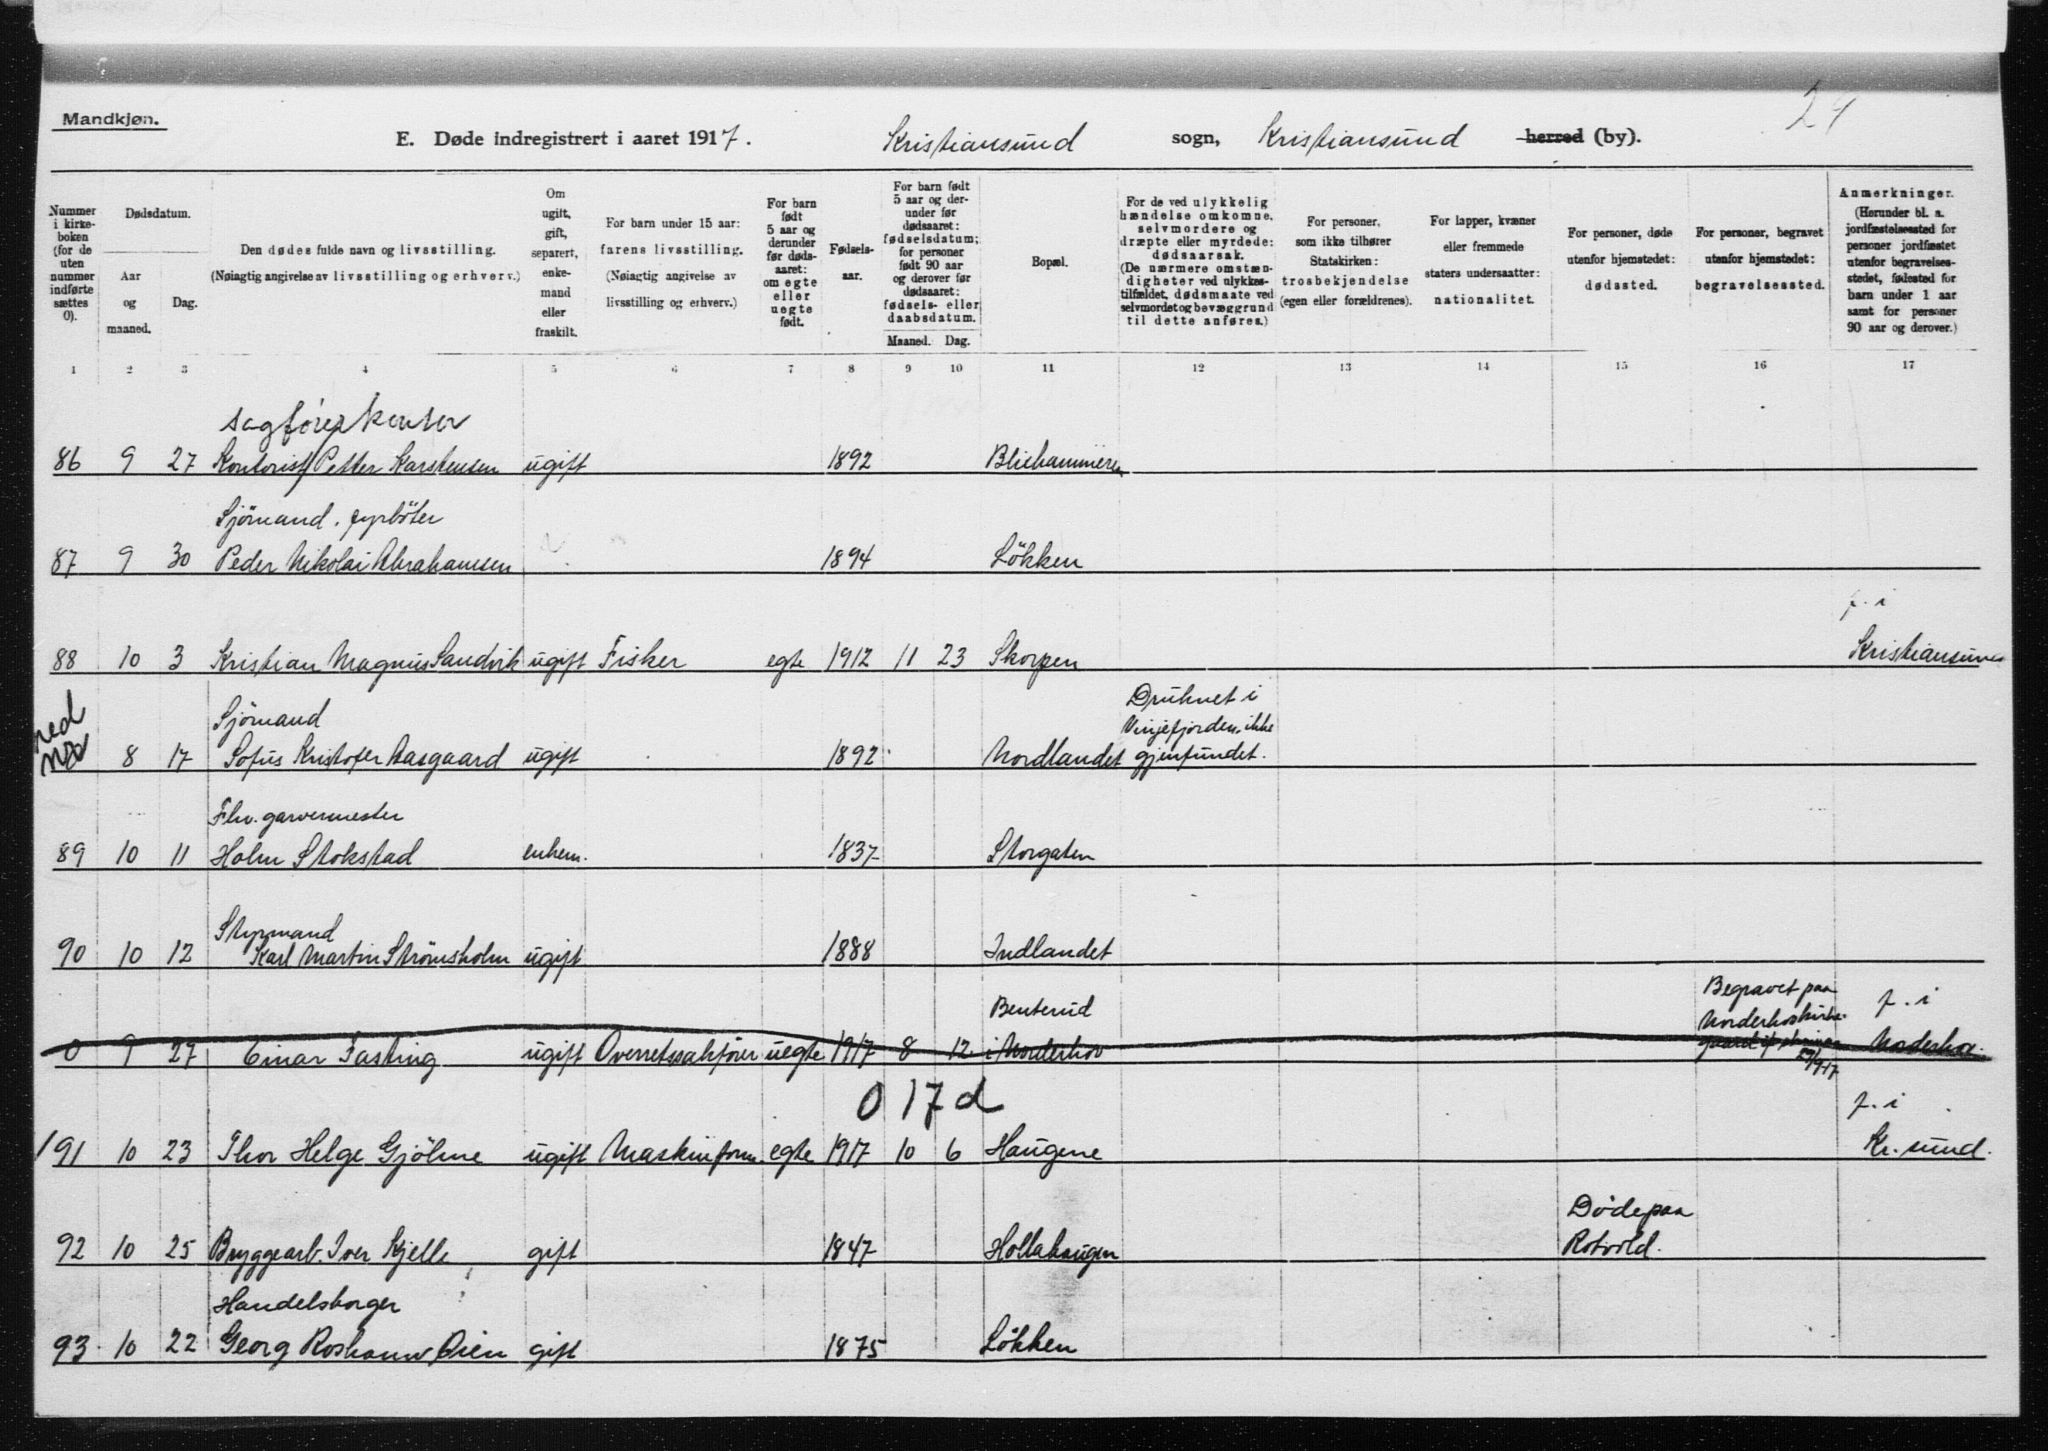 24
Mandkjøn.
E. Døde indregistrert i aaret 1917. Kristiansund sogn, Kristiansund herred (by).
Nummer i kirkeboken (for de uten nummer indførte sættes 0).
Dødsdatum.
Aar og maaned.
Dag.
Den dødes fulde navn og livsstilling.
(Nøiagtig angivelse av livsstilling og erhverv.)
Om ugift, gift, separert, enkemand eller fraskilt.
For barn under 15 aar: farens livsstilling.
(Nøiagtig angivelse av livsstilling og erhverv.)
For barn født 5 aar og derunder før dødsaaret: om egte eller uegte født.
Fødselsaar.
For barn født 5 aar og derunder før dødsaaret: fødselsdatum; for personer født 90 aar og derover før dødsaaret: fødsels- eller daabsdatum.
Maaned. Dag.
Bopæl.
For de ved ulykkelig hændelse omkomne, selvmordere og dræpte eller myrdede: dødsaarsak.
(De nærmere omstændigheter ved ulykkestilfældet, dødsmaate ved selvmordet og bevæggrund til dette anføres.)
For personer, som ikke tilhører Statskirken: trosbekjendelse (egen eller forældrenes).
For lapper, kvæner eller fremmede staters undersaatter: nationalitet.
For personer, døde utenfor hjemstedet: dødssted.
For personer, begravet utenfor hjemstedet: begravelsessted.
Anmerkninger.
(Herunder bl. a. jordfæstelsessted for personer jordfæstet utenfor begravelsesstedet, fødested for barn under 1 aar samt for personer 90 aar og derover.)
1 2 3 4 5 6 7 8 9 10 11 12 13 14 15 16 17
86 9 27 Kontorist Petter Karstensen ugift 1892
Sjömand. fyrböter
87 9 30 Peder Nikolai Abrahamsen 1894 Lökken
f. i
88 10 3 Kristian Magnus Sandvik ugift Fisker egte 1912 11 23 Skorpen Kristiansund
Sjömand Druknet i
Vinjefjorden, ikke
8 17 Sofus Kristofer Aasgaard ugift 1892 Nordlandet gjenfundet.
Fhv. garvermester
89 10 11 Holm Stokstad enkem. 1837 Storgaten
Styrmand
90 10 12 Karl Martin Strömsholm ugift 1888 Indlandet
Benterud Begravet paa f. i
0 9 27 Einar Fasting ugift Overretssakfører uegte 1917 8 12 i Norderhov Norderhov
27/9 17
0 17 d
f. i
91 10 23 Thor Helge Gjölme ugift Maskinform. egte 1917 10 6 Haugene Kr. sund.
Döde paa
92 10 25 Bryggearb. Iver Kjelle gift 1847 Hollahaugen Rotvold.
Handelsborger
93 10 22 Georg Øien gift 1875 Lökken